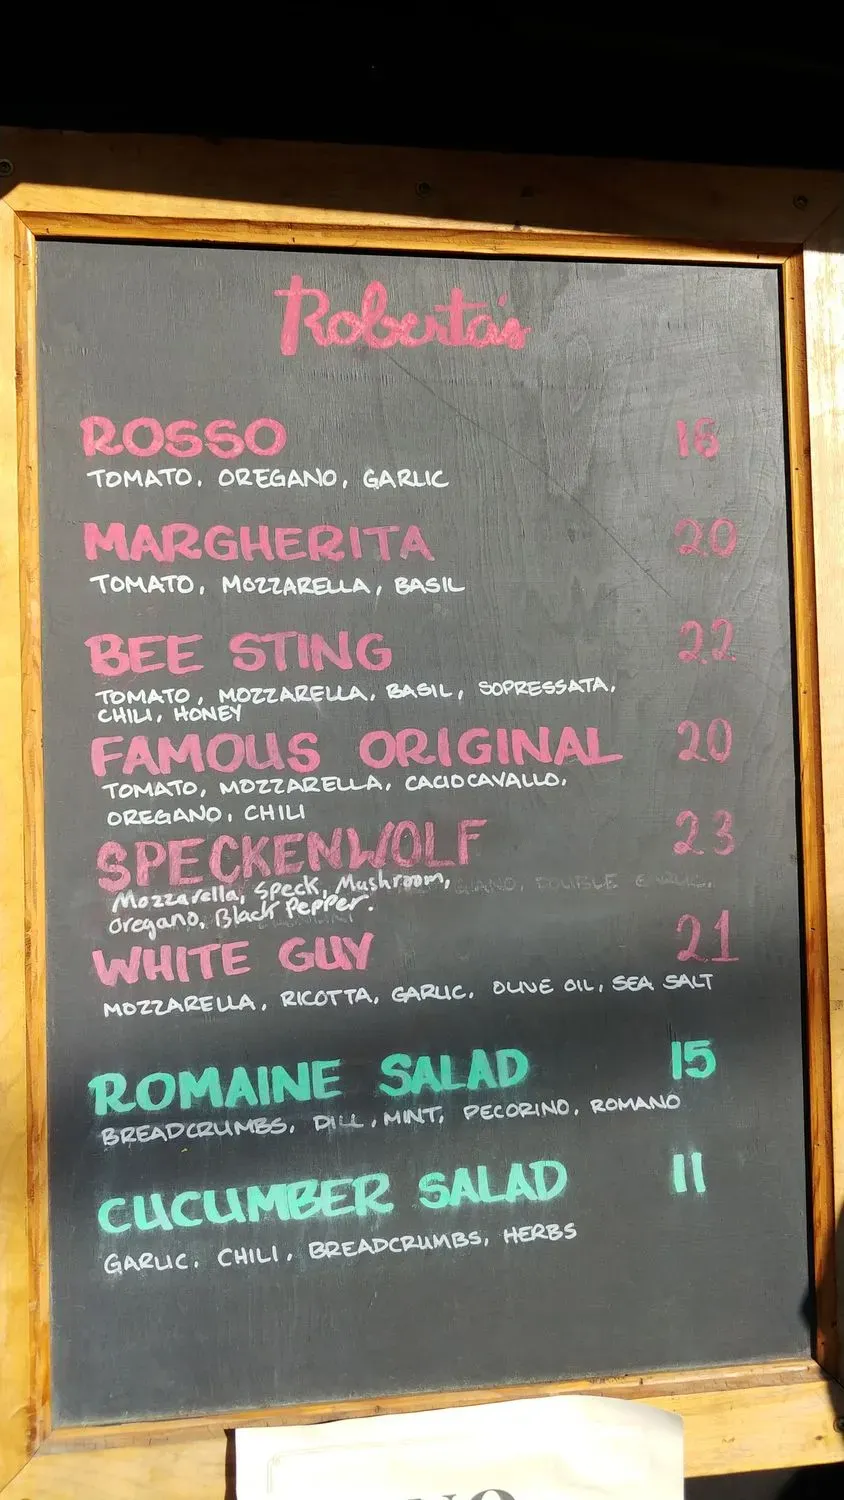 Roberta's
ROSSO 16
TOMATO, OREGANO, GARLIC
MARGHERITA 20
TOMATO, MOZZARELLA, BASIL
BEE STING 22
TOMATO, MOZZARELLA, BASIL, SOPRESSATA,
CHILI, HONEY
FAMOUS ORIGINAL 20
TOMATO, MOZZARELLA, CACIOCAVALLO,
OREGANO, CHILI
SPECKENWOLF 23
Mozzarella, Speck, Mushroom, DOUBLE GARLIC,
Oregano, Black Pepper.
WHITE GUY 21
MOZZARELLA, RICOTTA, GARLIC, OLIVE OIL, SEA SALT
ROMAINE SALAD 15
BREADCRUMBS, DILL, MINT, PECORINO, ROMANO
CUCUMBER SALAD 11
GARLIC, CHILI, BREADCRUMBS, HERBS